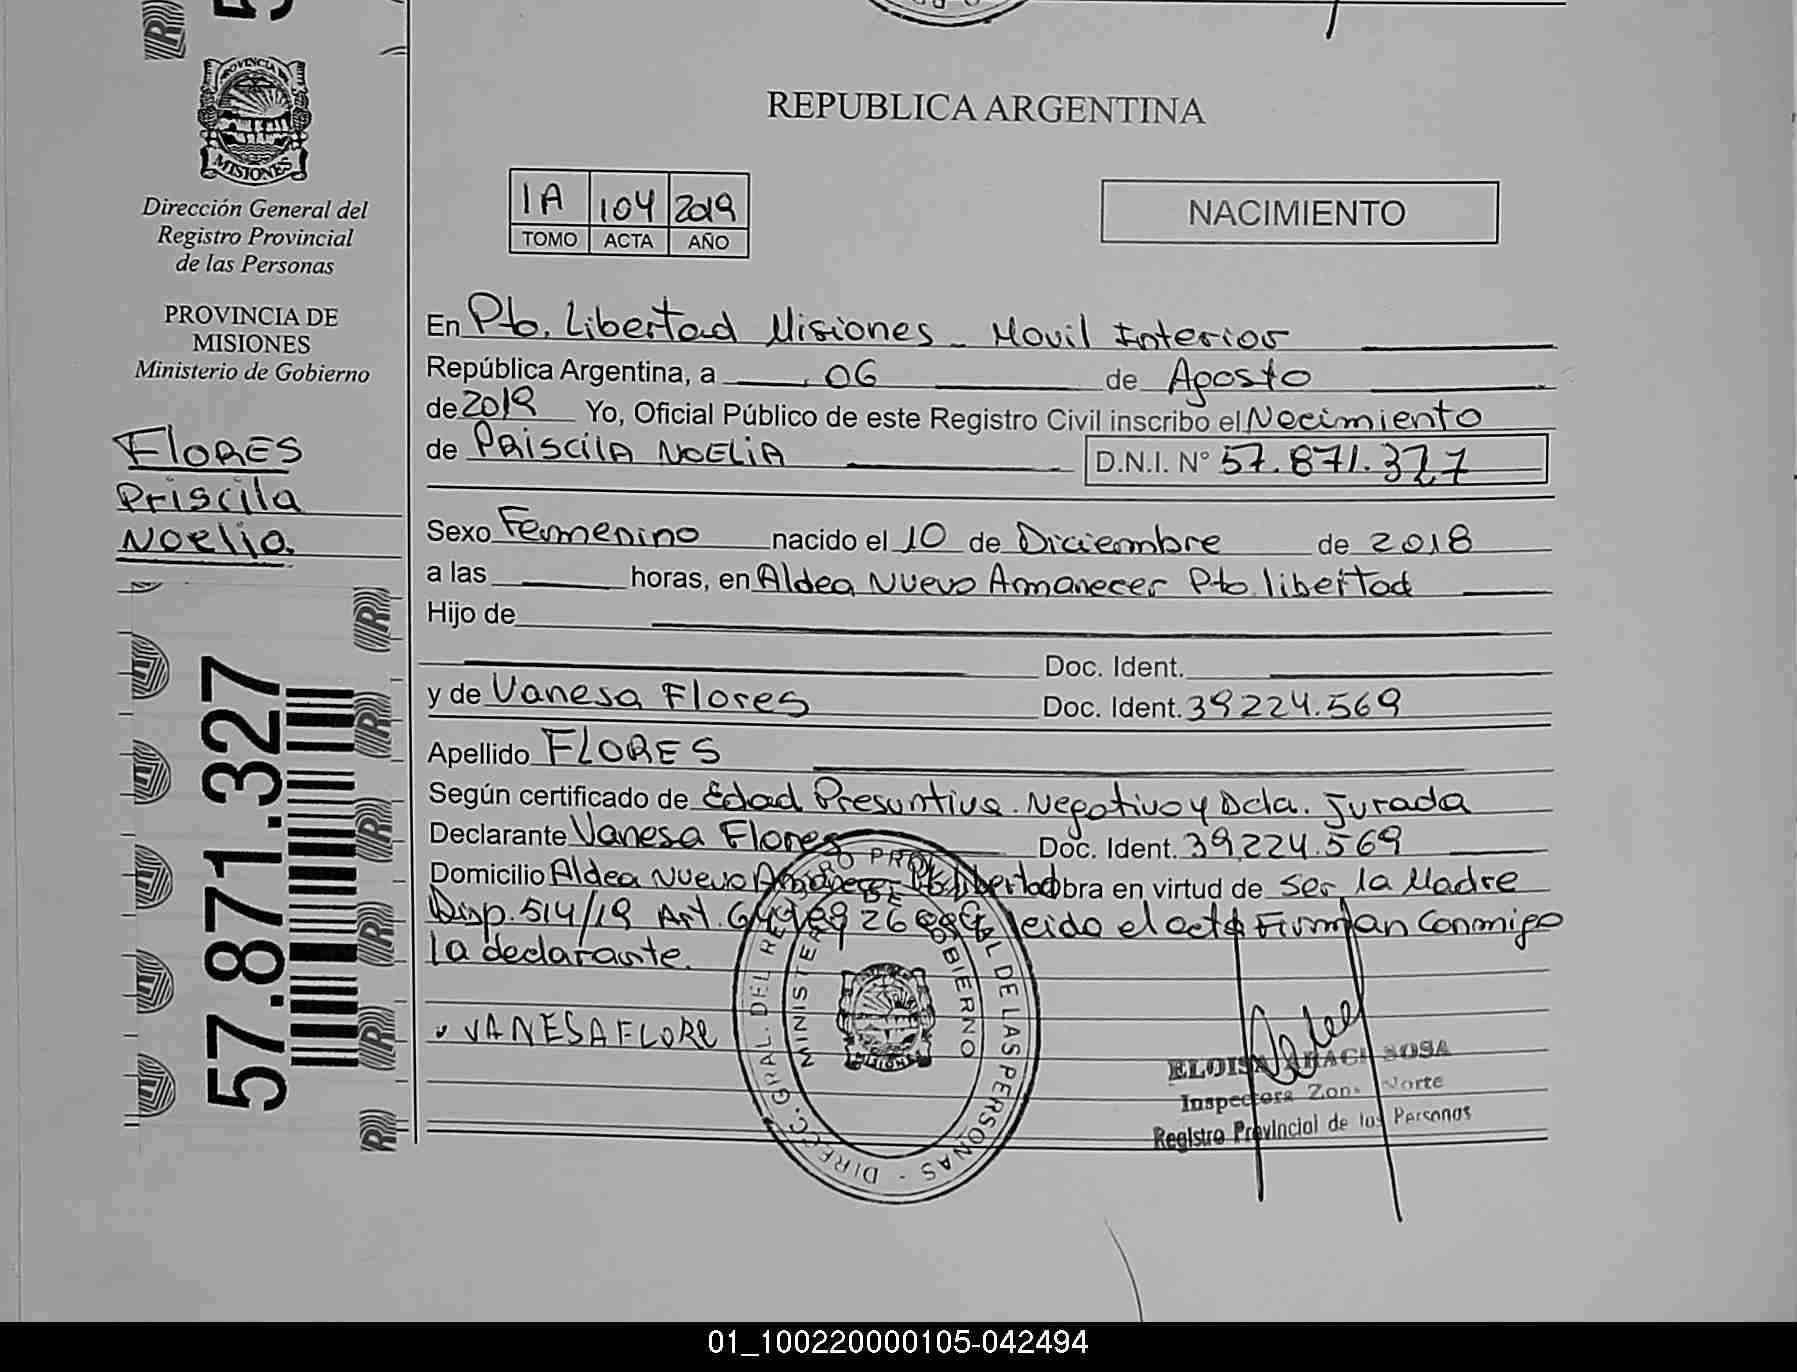 REPUBLICA ARGENTINA
PROVINCIA DE
MISIONES
Dirección General del
Registro Provincial
de las Personas
PROVINCIA DE
MISIONES
Ministerio de Gobierno
FLORES
Priscila
Noelia.
57.871.327
1A 104 2019
TOMO ACTA AÑO
NACIMIENTO
En Pto. Libertad Misiones - Movil Interior
República Argentina, a 06 de Agosto
de 2019 Yo, Oficial Público de este Registro Civil inscribo el Nacimiento
de PRISCILA NOELIA D.N.I. N° 57.871.327
Sexo Femenino nacido el 10 de Diciembre de 2018
a las horas, en Aldea Nuevo Amanecer Pto libertad
Hijo de
Doc. Ident.
y de Vanesa Flores Doc. Ident. 39224.569
Apellido FLORES
Según certificado de Edad Presuntiva. Negativo y Dcla. Jurada
Declarante Vanesa Flores Doc. Ident. 39.224.569
Domicilio Aldea Nuevo Amanecer Pto libertad obra en virtud de ser la Madre
Disp. 514/19 Art. leida el acta Firman Conmigo
la declarante.
VANESA FLORE
DIRECC. GRAL. DEL REGISTRO PROVINCIAL DE LAS PERSONAS -
MINISTERIO DE GOBIERNO
MISIONES
ELOISA SOSA
Inspectora Zona Norte
Registro Provincial de las Personas
01_100220000105-042494